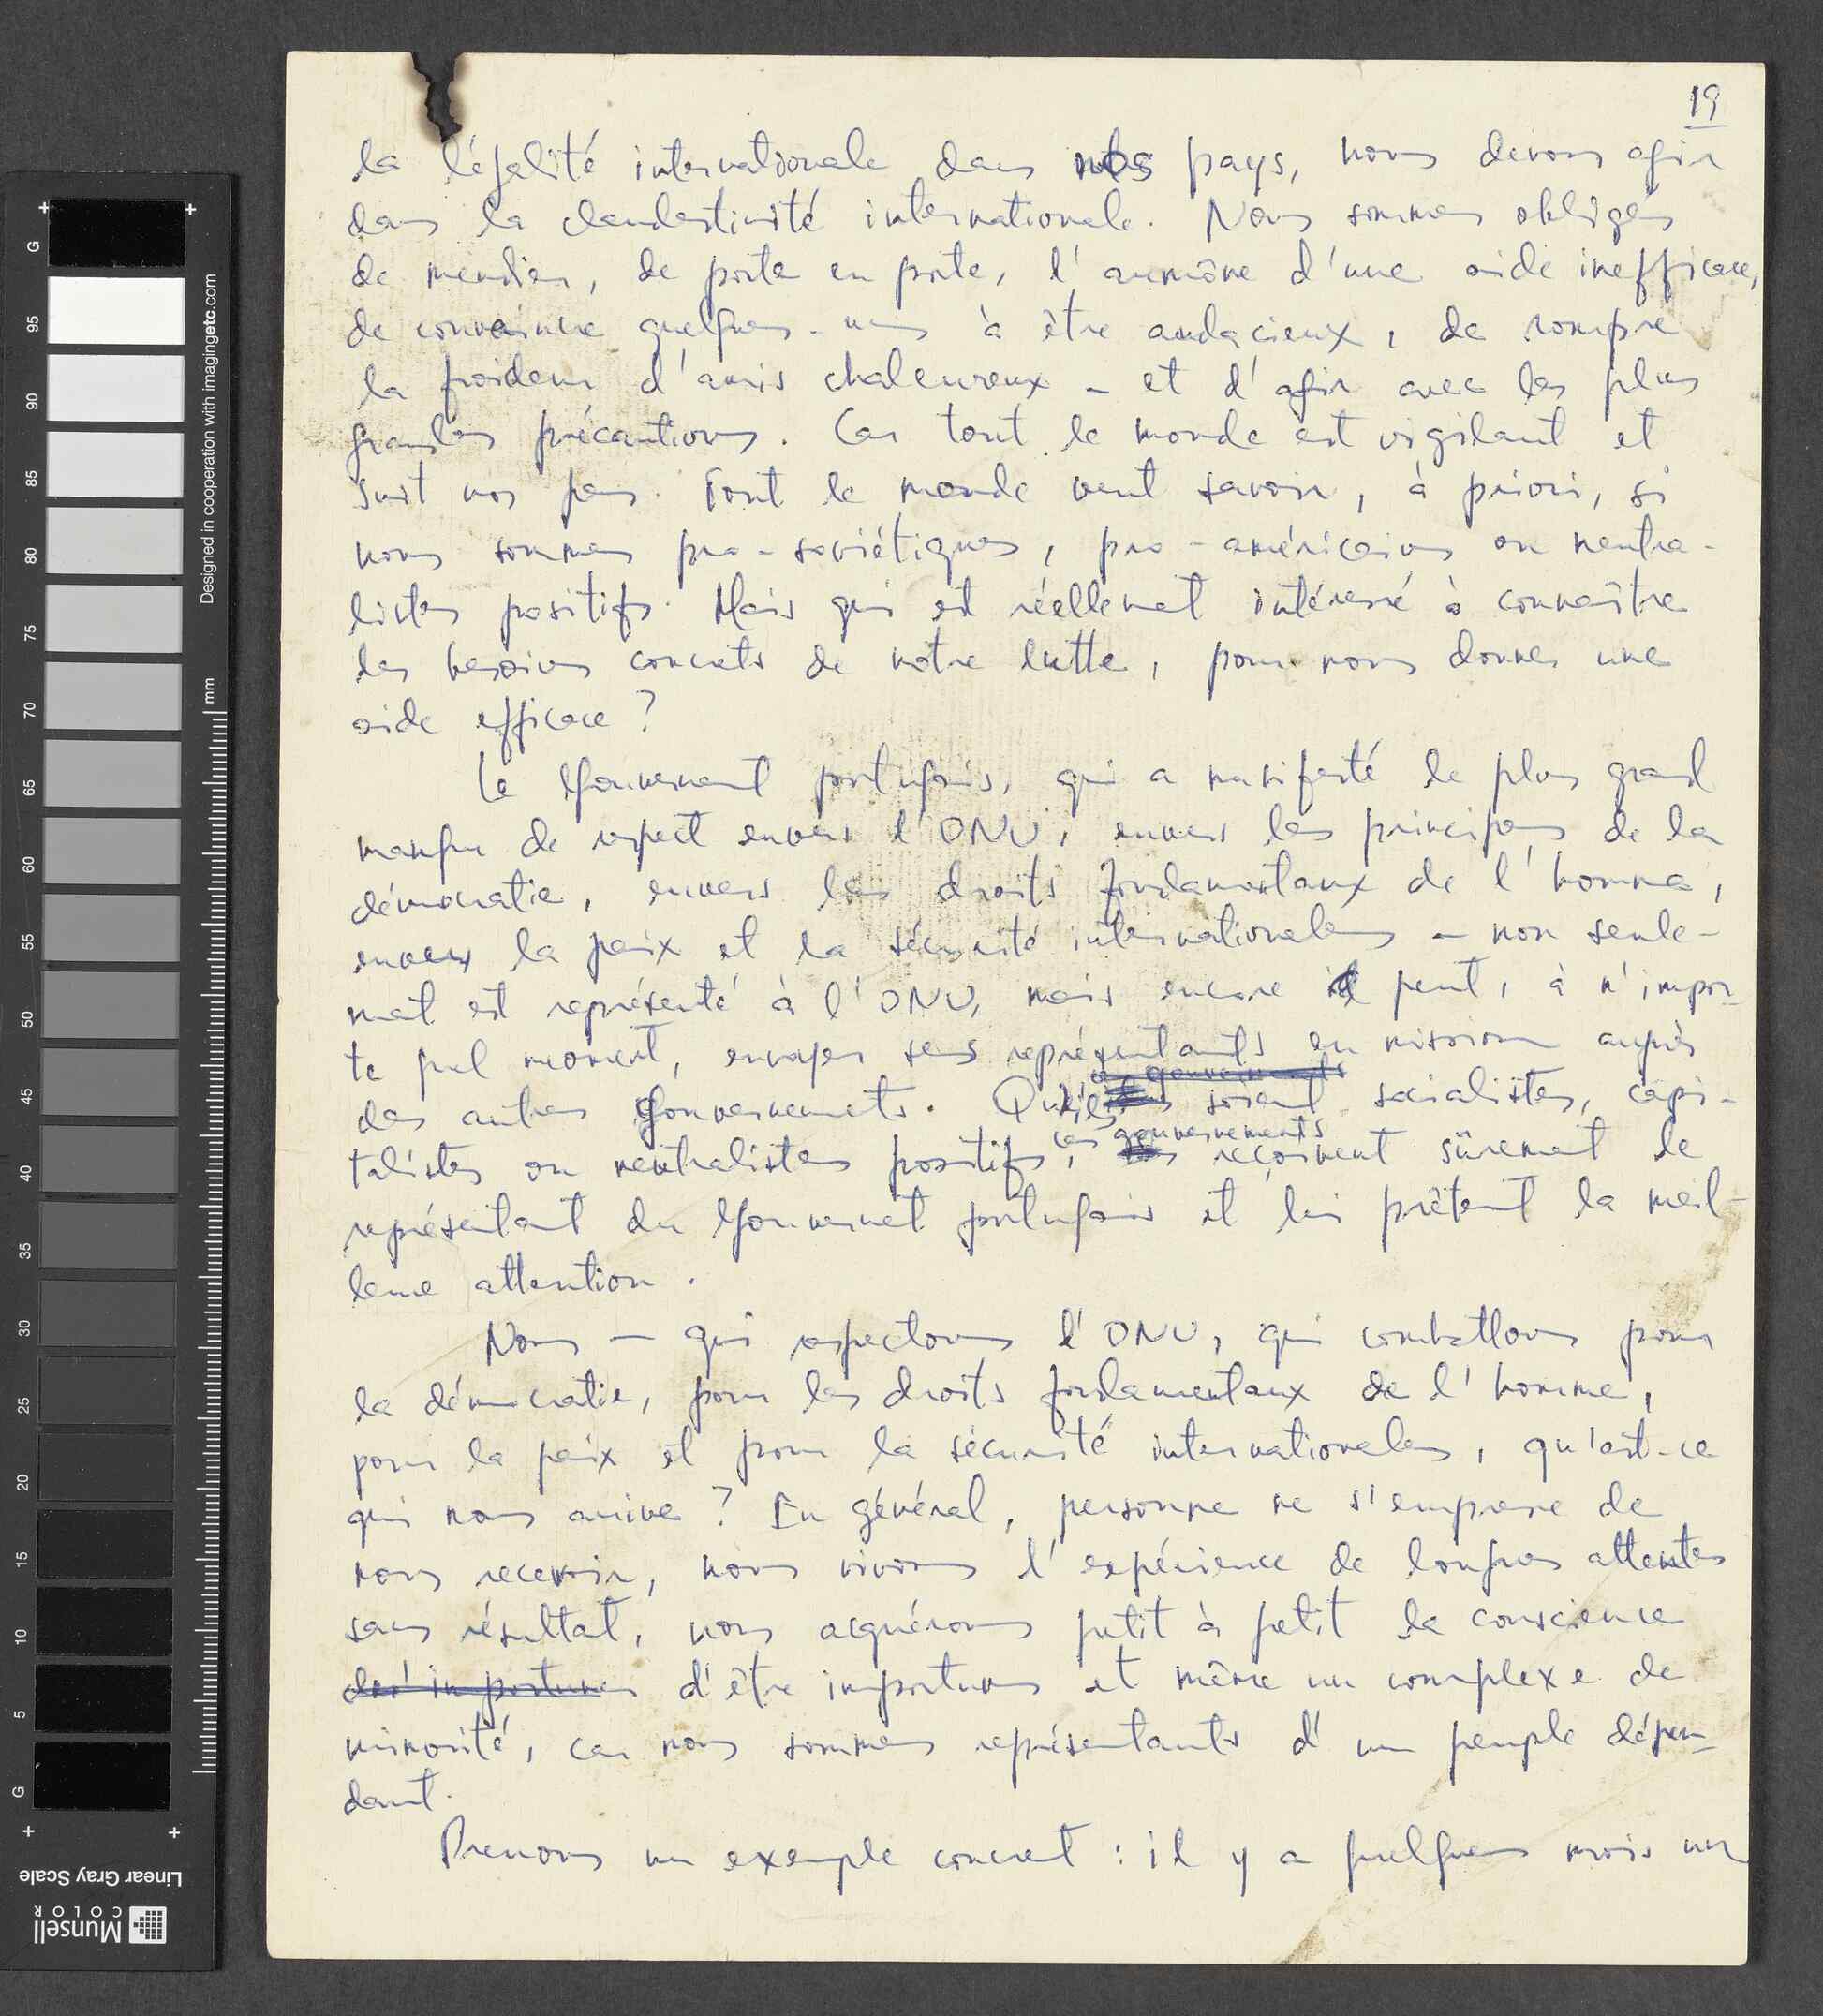 19
la légalité internationale dans nos pays, nous devons agir
dans la clandestinité internationale. Nous sommes obligés
de mendier, de porte en porte, l'aumône d'une aide inefficace,
de convaincre quelques-uns à être audacieux, de rompre
la froideur d'amis chaleureux - et d'agir avec les plus
grandes précautions. Car tout le monde est vigilant et
suit nos pas. Tout le monde veut savoir, à priori, si
nous sommes pro-soviétiques, pro-américains ou neutra-
listes positifs. Mais qui est réellement intéressé à connaître
les besoins concrets de notre lutte, pour nous donner une
aide efficace?
Le Gouvernement portugais, qui a manifesté le plus grand
manque de respect envers l'ONU, envers les principes de la
démocratie, envers les droits fondamentaux de l'homme,
envers la paix et la sécurité internationales - non seule-
ment est représenté à l'ONU, mais encore il peut, à n'impor-
te quel moment, envoyer ses représentants en mission auprès
ces gouvernements
des autres Gouvernements. Qu'ils soient socialistes, capi-
ces gouvernements
talistes ou neutralistes positifs, reçoivent sûrement le
représentant du Gouvernement portugais et lui prêtent la meil-
leure attention.
Nous - qui respectons l'ONU, qui combattons pour
la démocratie, pour les droits fondamentaux de l'homme,
pour la paix et pour la sécurité internationales, qu'est-ce
qui nous arrive? En général, personne ne s'empresse de
nous recevoir, nous vivons l'expérience de longues attentes
sans résultat, nous acquérons petit à petit la conscience
importunes d'être importuns et même un complexe de
minorité, car nous sommes représentants d'un peuple dépen-
dant.
Prenons un exemple concret: il y a quelques mois un
Designed in cooperation with imagingetc.com
mm
G
95
90
85
80
75
70
65
60
55
50
45
40
35
30
25
20
15
10
5
G
Linear Gray Scale
Munsell
COLOR